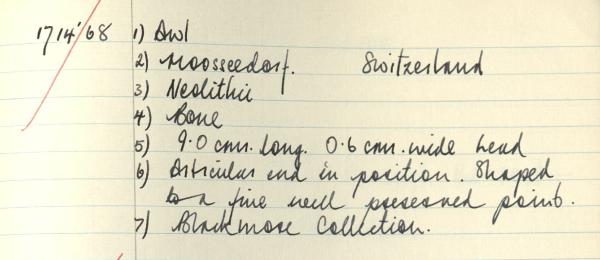 1714'68 1) Awl
2) Moosseedorf. Switzerland
3) Neolithic
4) Bone
5) 9.0 cms. long. 0.6 cms. wide head
6) Articular end in position. Shaped
to a fine well preserved point.
7) Blackmore Collection.